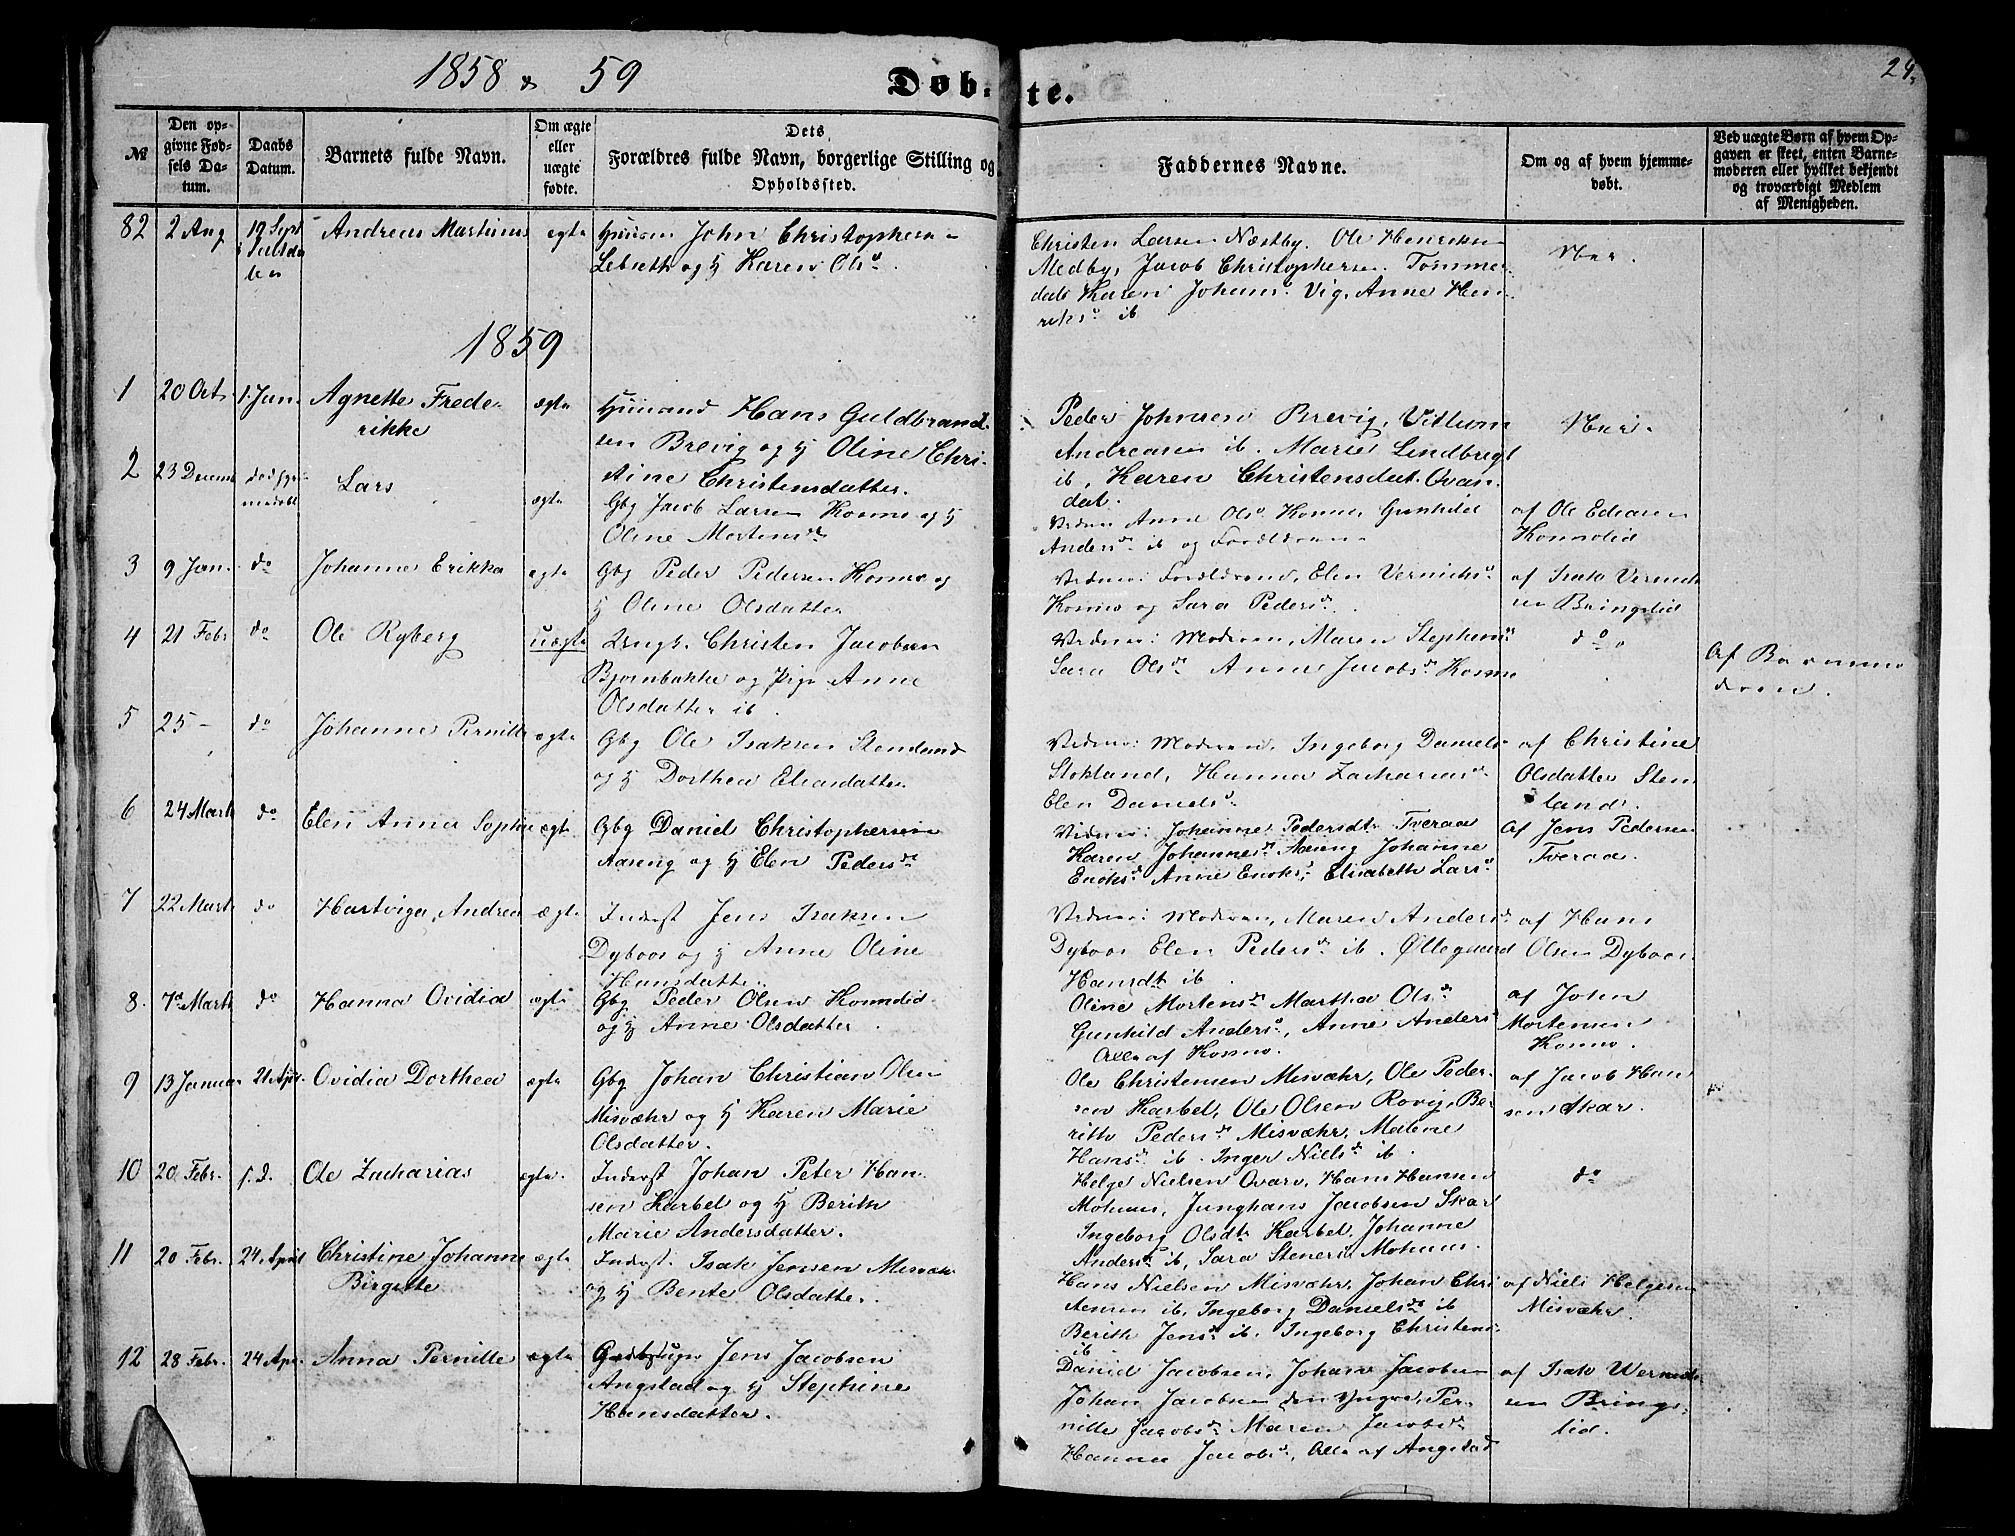 1858 & 59
Døb-
te.
24.
No
Den op-
givne Fød-
sels Da-
tum.
Daabs
Datum.
Barnets fulde Navn.
Om ægte
eller
uægte
fødte.
Dets
Forældres fulde Navn, borgerlige Stilling og
Opholdssted.
Faddernes Navne.
Om og af hvem hjemme-
døbt.
Ved uægte Børn af hvem Op-
gaven er skeet, enten Barne-
moderen eller hvilket bekjendt
og troværdigt Medlem
af Menigheden.
82 2 Aug 19 Sept Andreas Martinus ægte John Christophersen
og H Karen Ols
Christen Larsen Næstby. Ole Henriksen
Medby, Jacob Christophersen Tømmer-
dal Karen Johans. Vig, Anne Hen-
riks ib
1859
1 20 Oct 1. Jan. Agnette Frede-
rikke
ægte
Huusmand Hans Guldbrand-
sen Brevig og H Oline Chri-
stine Christensdatter.
Peder Johnsen Brevig,
Andreasen ib. Marie
ib, Karen Christensdat.
dal.
2 23 Decemb Lars ægte
Gbg Jacob Larsen Kosmo og H
Oline Mortensd
Vidner Anne Ols Kosmo Gunhild
Anders ib og Forældrene
af Ole Edisen
Kosmolid
3 9 Jan. do Johanne Erikka ægte
Gbg Peder Pedersen Kosmo og
H Oline Olsdatter
Vidner: Forældrene, Elen
Kosmo og Sara Pedersd
af Isak
sen Bringslid
4 21 Febr do Ole Ryberg uægte
Ungk. Christen Jacobsen
Bjørnbakke og Pige Anne
Olsdatter ib.
Vidner: Moderen, Maren Stephens
Sara Olsd Anne Jacobsd Kosmo
do
Af Barnemo
deren.
5 25 - do Johanne Pernille ægte
Gbg Ole Isaksen Stenland
og H Dorthea Eliasdatter.
Vidner: Moderen, Ingeborg Daniels
Stokland, Hanna Zacharias
Elen Daniels
af Christine
Olsdatter Sten
land.
6 24 Marts do Elen Anna Sophie ægte
Gbg Daniel Christophersen
Aaseng og H Elen Pedersd
Vidner: Johanne Pedersdt Tveraa
Karen Aaseng Johanne
Enoks Anne Enoks, Elisabeth Lars
af Jens Pedersen
Tveraa.
7 22 Marts do Hartviga Andrea ægte
Inderst Jens Isaksen
Dybvos og H Anne Oline
Hansdatter.
Vidner: Moderen, Maren Andersd
Dybvos Elen Pedersd ib. Øllegaard
Hansdt ib.
af Hans
Olsen Dybvos
8. 7d Marts do Hanna Ovidia ægte
Gbg Peder Olsen Kosmolid
og H Anne Olsdatter.
Oline Mortensd Marthea Olsd
Gunhild Anders, Anne Anders
Alle af Kosmo.
af John
Mortensen
Kosmo.
9 13 Januar 21 Apr. Ovidia Dorthea ægte
Gbg Johan Christian Olsen
Misvæhr og H Karen Marie
Olsdatter.
Ole Christensen Misvæhr, Ole Peder-
sen Karbel, Ole Olsen Rovig, Be-
rith Pedersd Misvæhr, Malene
Hansd ib. Inger Nielsd ib.
af Jacob Han
sen Skar.
10 20 Febr. s. D. Ole Zacharias ægte.
Inderst Johan Peter Han-
sen Karbel og H Berith
Marie Andersdatter.
Helge Nielsen Hans Hansen
Mohuus, Junghans Jacobsen Skar
Ingeborg Olsdt Karbel, Johanne
Anders ib, Sara Mohuus.
do
11 20 Febr. 24 April Christine Johanne
Birgitte
ægte
Inderst. Isak Jensen Misvæhr
og H Bente Olsdatter.
Hans Nielsen Misvæhr, Johan Chri
stensen ib, Ingeborg Danielsd ib
Berith Jensd ib. Ingeborg Christens.
ib
af Niels Helgesen
Misvæhr.
12 28 Febr. 24 Apr. Anna Pernille ægte
Jens Jacobsen
Angstad og H Stephine
Hansdatter.
Daniel Jacobsen, Johan Jacobsen
Johan Jacobsen den Yngre, Per-
nille Jacobsd Maren Jacobsd
Hanna Jacobs, Alle af Angstad
af Isak
sen Brings-
lid.